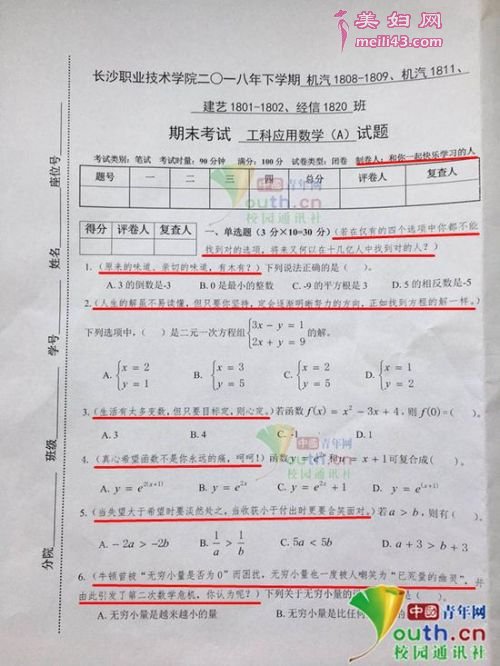 美妇网
meili43.com
长沙职业技术学院二〇一八年下学期 机汽1808-1809、机汽1811、
建艺1801-1802、经信1820 班
期末考试 工科应用数学（A） 试题
考试类别：笔试 考试时量：90分钟 满分：100分 试卷类型：闭卷 制卷人：和你一起快乐学习的人
题号 一 二 三 四 总分 评卷人 复查人
得分
得分 评卷人 复查人
一、单选题（3分×10=30分）（若在仅有的四个选项中你都不能
找到对的选项，将来又何以在十几亿人中找到对的人？）
1.（原来的味道、亲切的味道，有木有？）下列说法正确的是（ ）。
A. 3的倒数是-3 B. 0是最小的整数 C. -9的平方根是3 D. 5的相反数是-5
2.（人生的解虽不易读懂，但只要你坚持，定会逐渐明晰努力的方向，正如找到方程的解一样。）
下列选项中，（ ）是二元一次方程组{3x − y = 1 2x + y = 9 的解。
A. {x = 2 y = 1 B. {x = 3 y = 5 C. {x = 5 y = 2 D. {x = 1 y = 5
3.（生活有太多变数，但只要目标定，则心定。）若函数 f(x) = x² − 3x + 4，则 f(0) =（ ）。
A. 3 B. 4 C. -1 D. 1
4.（真心希望函数不是你永远的痛，呵呵！）函数 和 = x + 1可复合成（ ）。
A. y = e²⁽ˣ⁺¹⁾ B. y = e²ˣ C. y = e²ˣ + 1 D. y = e⁽ˣ⁺¹⁾
5.（当失望大于希望时要淡然处之，当收获小于付出时更要会笑面对。）若 a > b，则有（ ）。
A. − 2a > −2b B. 1/a > 1/b C. 5a < 5b D. a + 3 > b + 3
6.（牛顿曾被“无穷小量是否为0”而困扰，无穷小量也一度被人嘲笑为“已死量的幽灵”，并
由此引发了第二次数学危机，你认为呢？）下列关于无穷小量的
A. 无穷小量是越来越小的量 B. 无穷小量是比任何
座位号
姓名
学号
班级
分院
中國青年网
outh.cn
校园通讯社
中國青年网
outh.cn
校园通讯社
中國青年网
outh.cn
校园通讯社